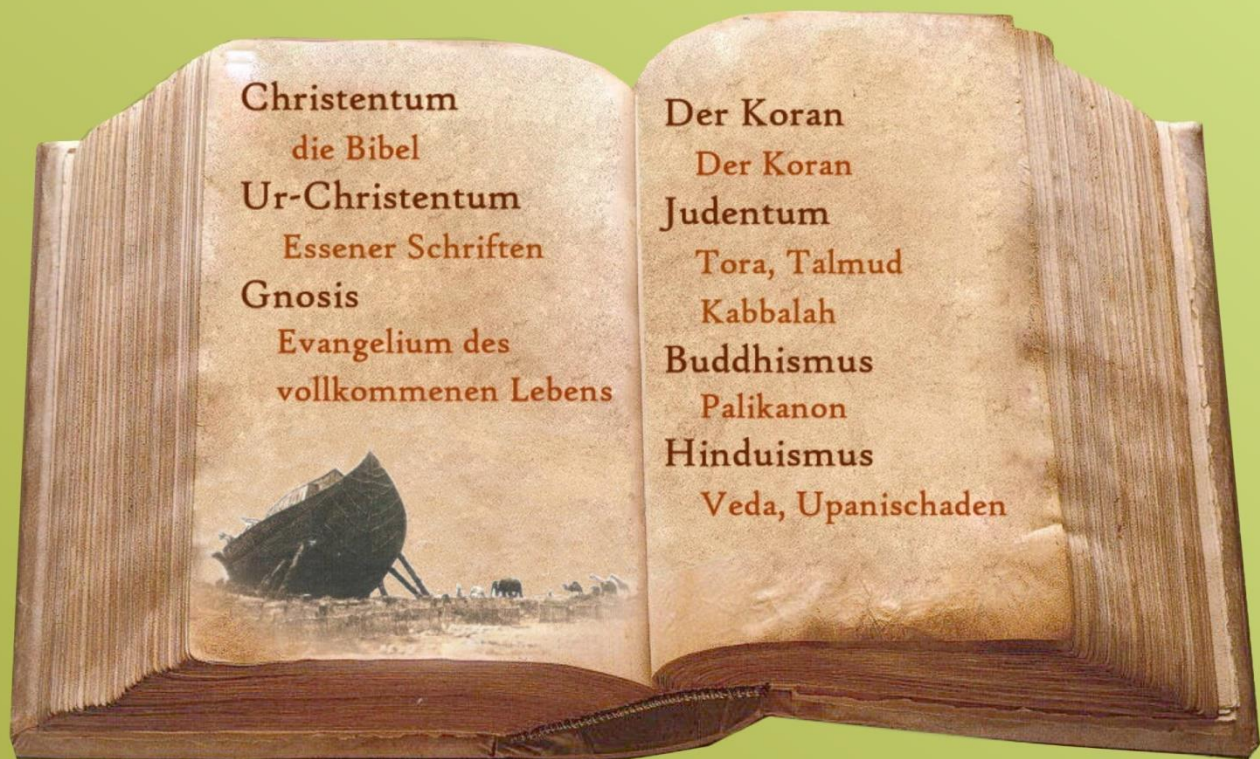 Christentum
die Bibel
Ur-Christentum
Essener Schriften
Gnosis
Evangelium des
vollkommenen Lebens
Der Koran
Der Koran
Judentum
Tora, Talmud
Kabbalah
Buddhismus
Palikanon
Hinduismus
Veda, Upanischaden